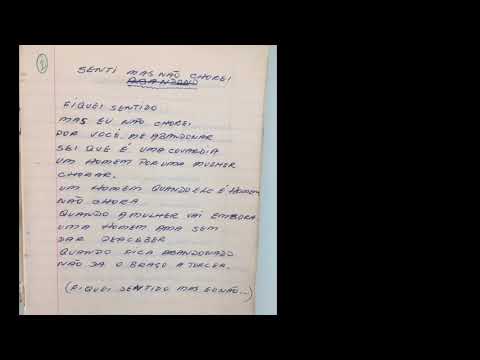 SENTI MAS NÃO CHOREI
ABANDONO
FIQUEI SENTIDO
MAS EU NÃO CHOREI
POR VOCÊ ME ABANDONAR
SEI QUE É UMA COVARDIA
UM HOMEM POR UMA MULHER
CHORAR.
UM HOMEM QUANDO ELE É HOMEM
NÃO CHORA
QUANDO A MULHER VAI EMBORA
UMA HOMEM AMA SEM
DAR
QUANDO FICA ABANDONADO
NÃO DA O BRAÇO A TORCER.
(FIQUEI SENTIDO MAS EU NÃO...)